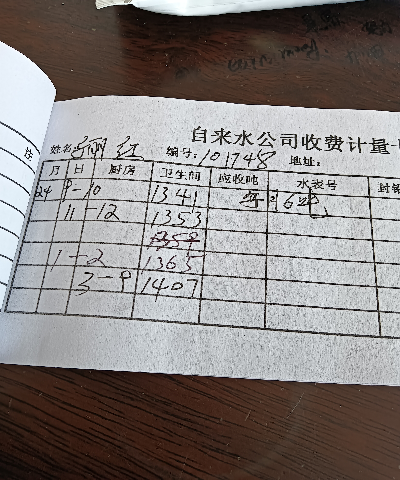 自来水公司收费计量
姓名 丽红 编号:101748 地址:
月 日 厨房 卫生间 应收吨 水表号 封铅
24 9-10 1341
11-12 1353
1359
1-2 1365
3-9 1407